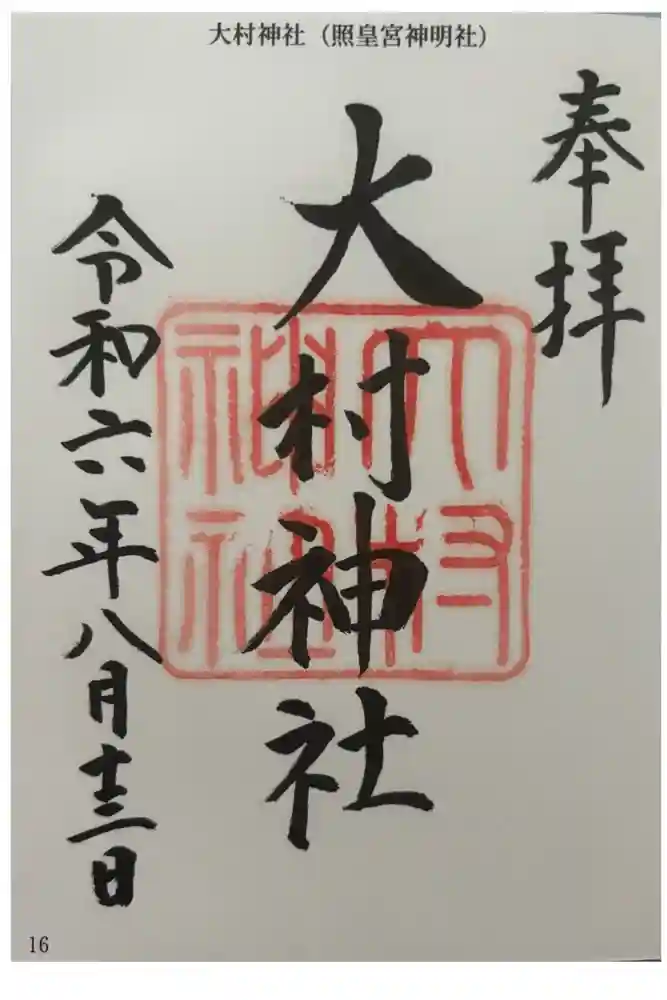 大村神社（照皇宮神明社）
奉拝
大村神社
大村
神社
令和六年八月十三日
16